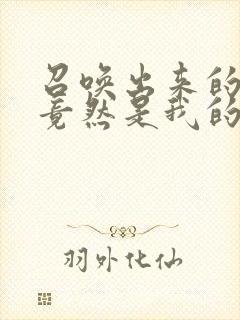 召唤出来的
竟然是我的
羽外化仙